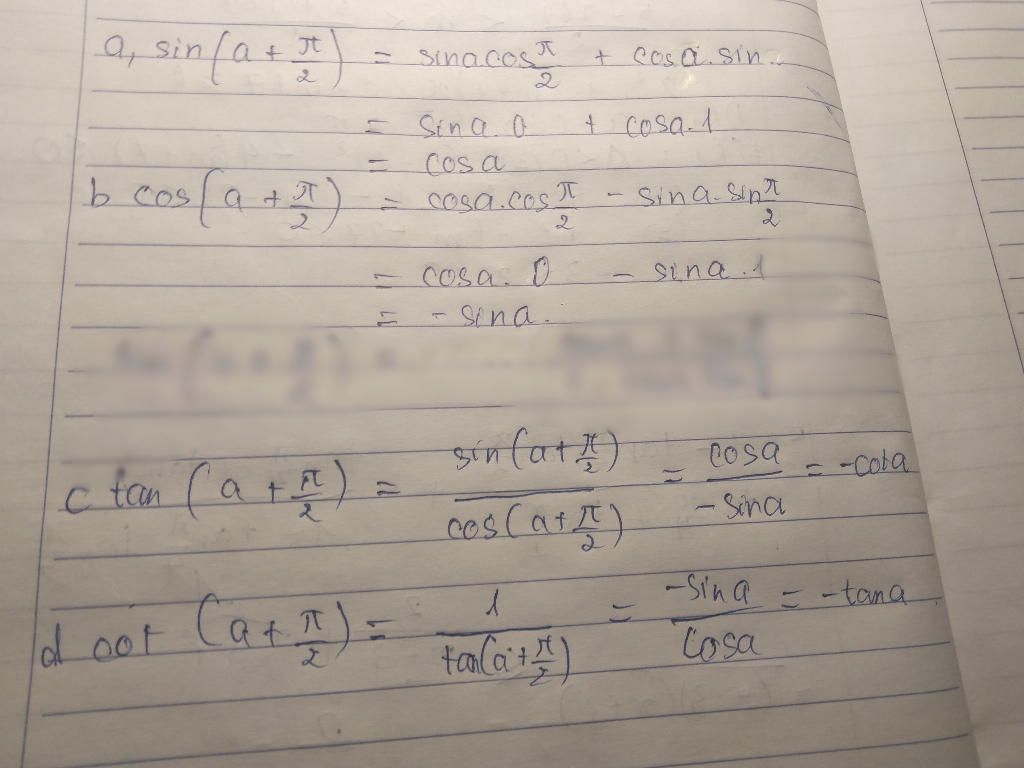 a, sin(a + π/2) = sina cos π/2 + cosa. sin
= sina. 0 + cosa. 1
= cosa
b cos(a + π/2) = cosa. cos π/2 - sina. sin π/2
= cosa. 0 - sina. 1
= - sina.
c tan (a + π/2) = sin(a + π/2) / cos(a + π/2) = cosa / - sina = - cota
d cot (a + π/2) = 1 / tan(a + π/2) = - sina / cosa = - tana